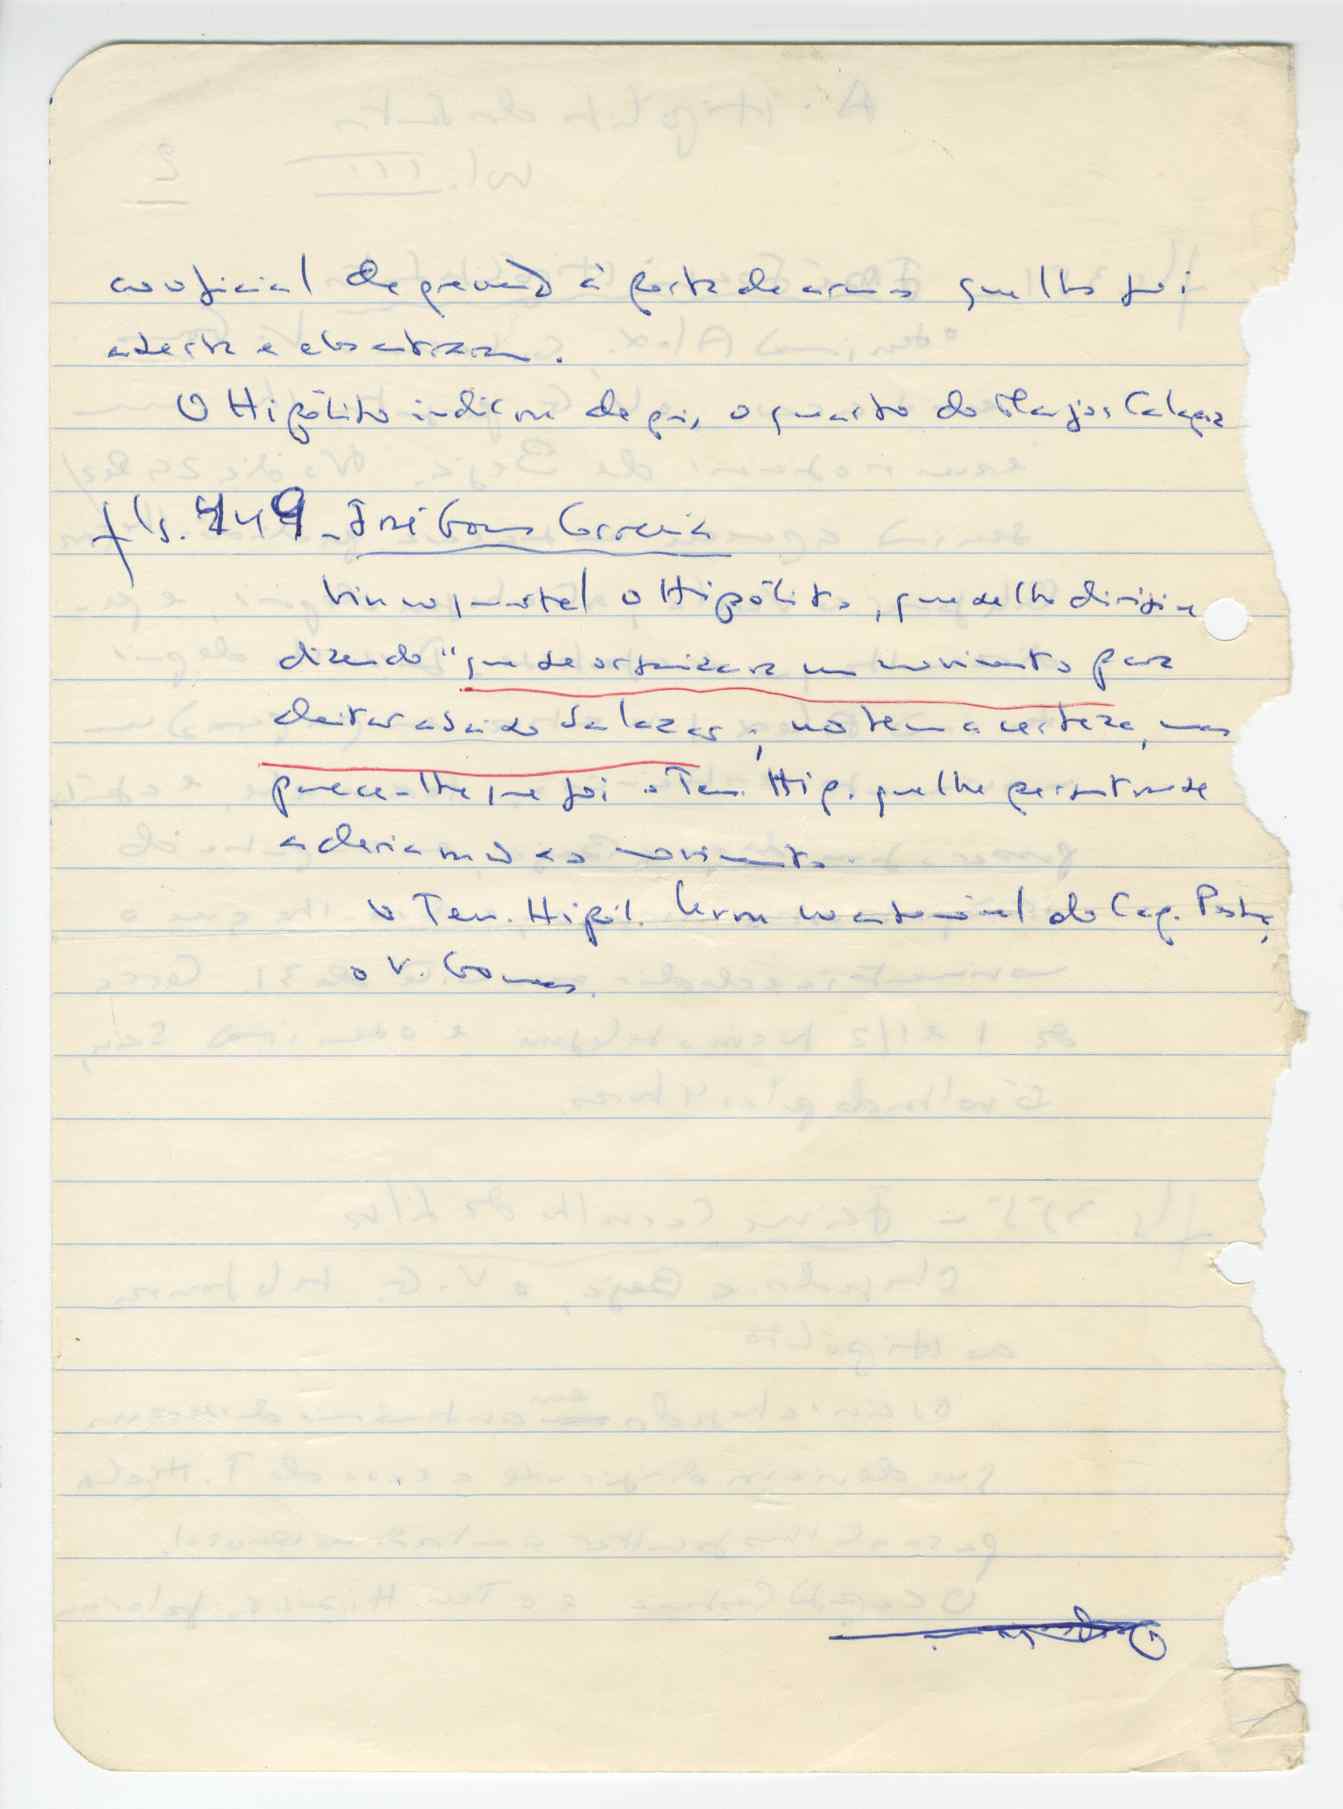 ao oficial de prevenção à porta de armas que lhes foi
aberta e eles entraram.
O Hipólito indicou depois, o quarto do Major Calapez
fls. 449 - José Gomes Correia
Viu no quartel o Hipólito, que se lhe dirigiu
dizendo "que se organizara um movimento para
deitar abaixo Salazar; não tem a certeza, mas
parece-lhe que foi o Ten. Hip. que lhe perguntou se
aderia ou não ao movimento
O Ten. Hipól. levou no automóvel do Cap. Pestana,
o V. Gomes.